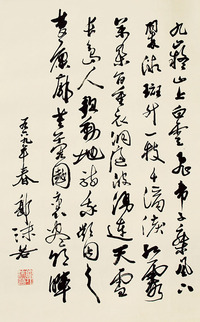 九嶷山上白雲飛帝子乘風下
翠微斑竹一枝千滴淚紅霞
萬朵百重衣洞庭波涌連天雪
長島人歌動地詩我欲因之
夢寥廓芙蓉國裏盡朝暉
六九年春 郭沫若